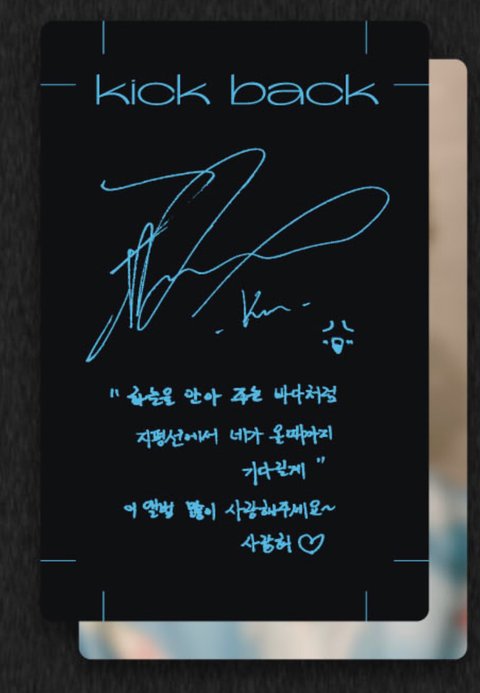 kick back
- Kun -
" 하늘을 안아 주는 바다처럼
지평선에서 네가 올때까지
기다릴게 "
이 앨범 많이 사랑해주세요~
사랑해 ♡